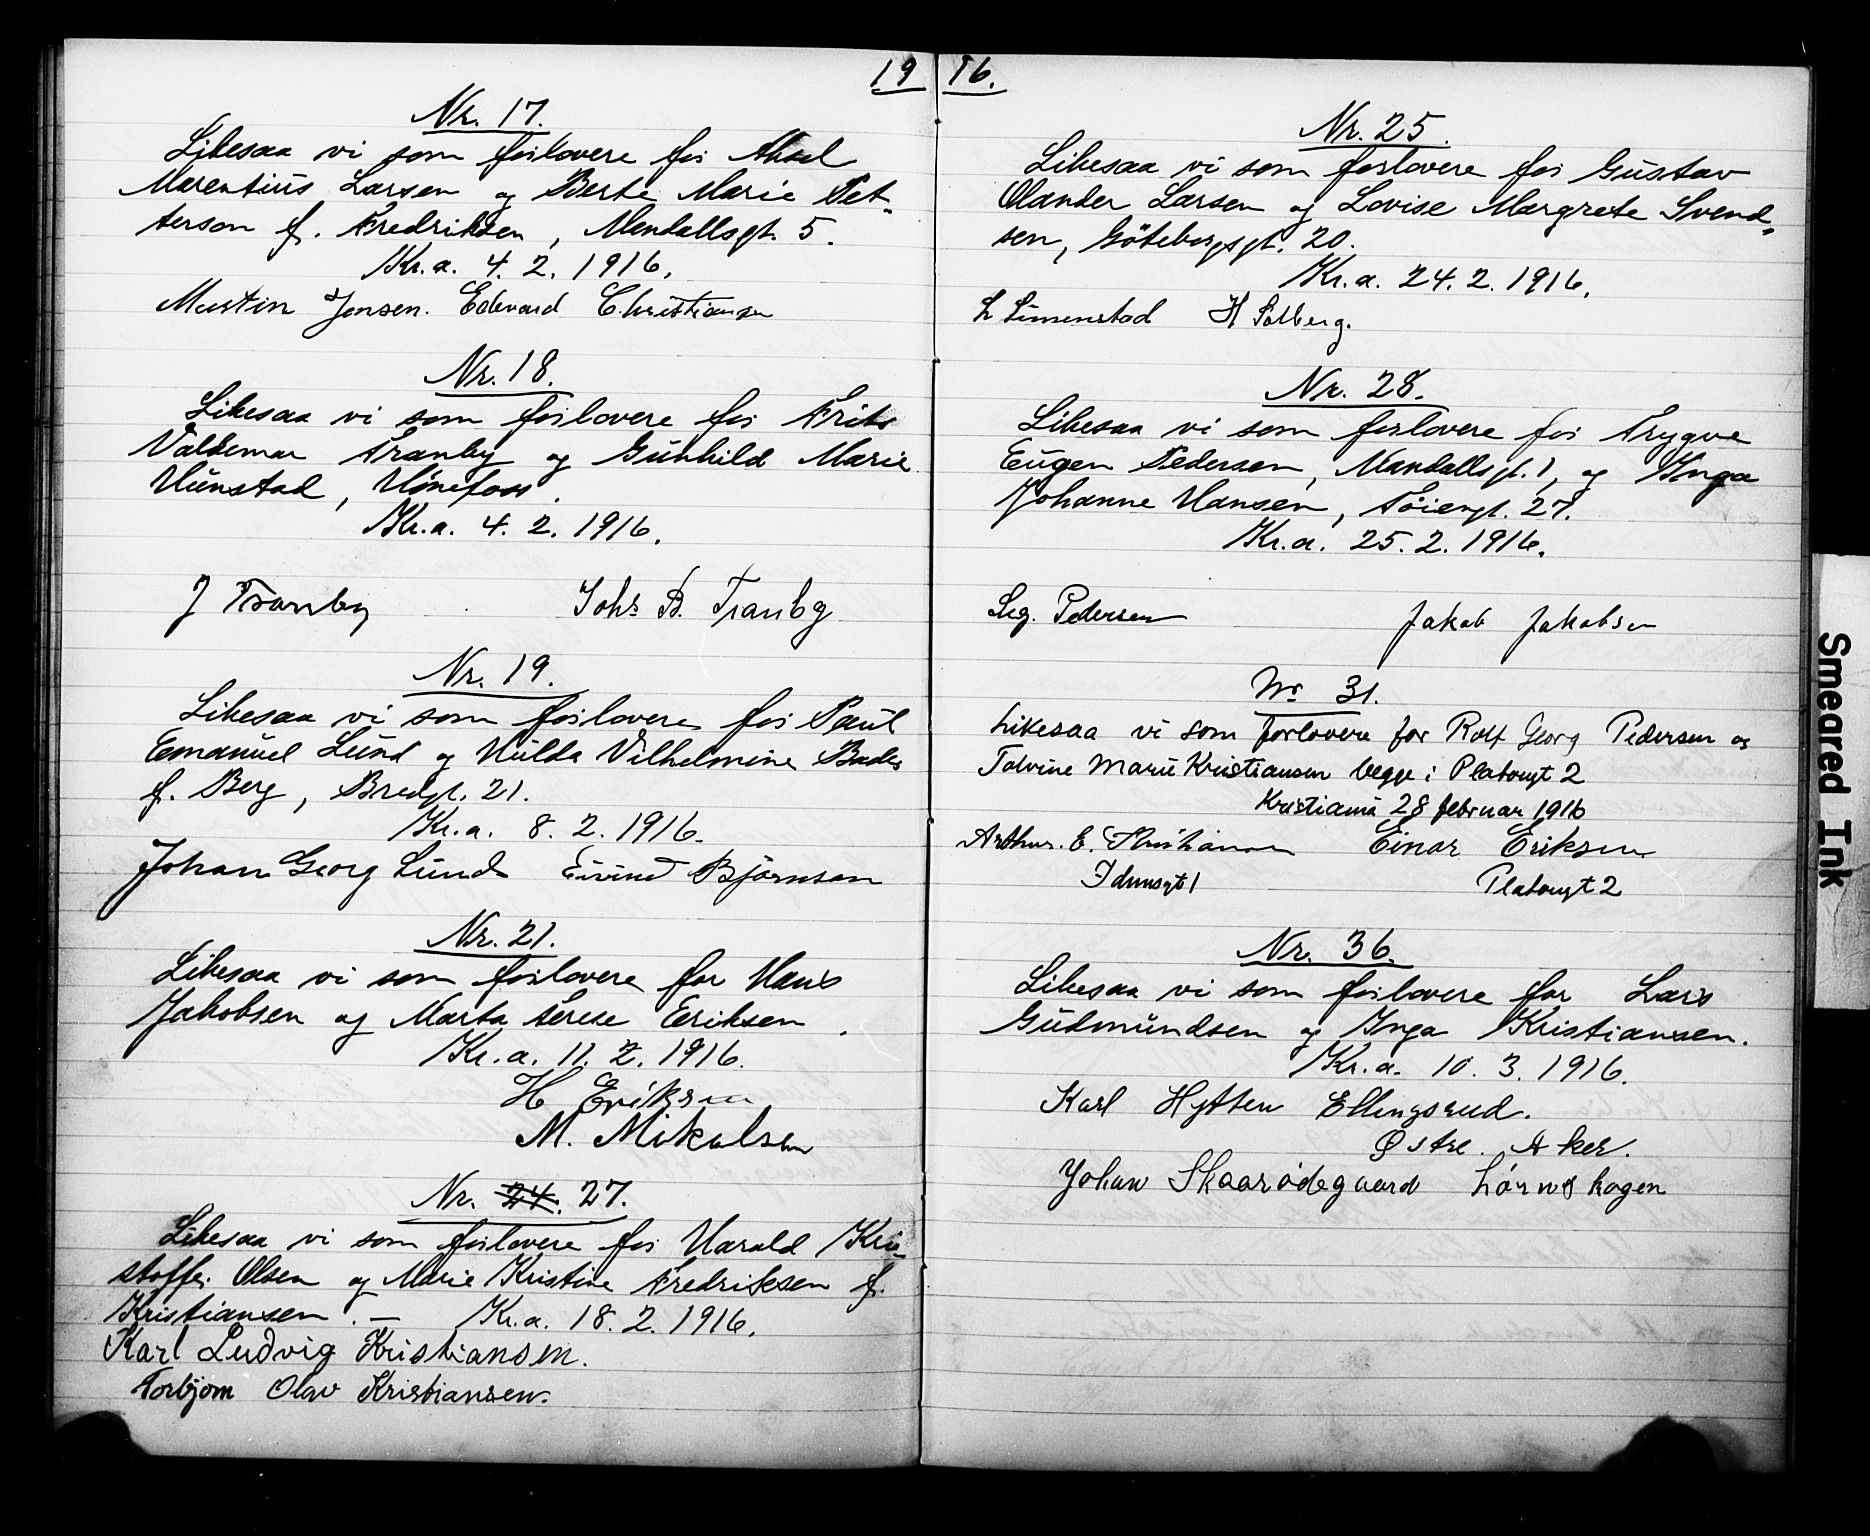 1916.
Nr. 17.
Likesaa vi som forlovere for Aksel
Marentius Larsen og Berte Marie Pet-
terson f. Fredriksen, Mandallsgt. 5.
Kr.a. 4. 2. 1916.
Martin Jensen. Edevard Christiansen
Nr. 18.
Likesaa vi som forlovere for Frits
Valdemar Tranby og Gunhild Marie
Hunstad, Hønefoss.
Kr.a. 4. 2. 1916.
J Tranby Johs B. Tranby
Nr. 19.
Likesaa vi som forlovere for Paul
Emanuel Lund og Hulda Vilhelmine
f. Berg, Bredgt. 21.
Kr.a. 8. 2. 1916.
Johan Georg Lund Eivind Bjørnsen
Nr. 21.
Likesaa vi som forlovere for Hans
Jakobsen og Marta Terese Eriksen.
Kr.a. 11. 2. 1916.
H Eriksen
M. Mikalsen
Nr. 24. 27.
Likesaa vi som forlovere for Harald Kri-
stoffer Olsen og Marie Kristine Fredriksen f.
Kristiansen. — Kr.a. 18. 2. 1916.
Karl Ludvig Kristiansen.
Torbjørn Olav Kristiansen.
Nr. 25.
Likesaa vi som forlovere for Gustav
Olander Larsen og Lovise Margrete Svend-
sen, Götebergsgt. 20.
Kr.a. 24. 2. 1916.
L Simenstad H Solberg.
Nr. 28.
Likesaa vi som forlovere for Trygve
Eugen Pedersen, Mandallsgt. 1, og Inga
Johanne Hansen, Töiengt. 27.
Kr.a. 25. 2. 1916.
Pedersen Jakob Jakobsen
Nr 31.
Likesaa vi som forlovere for Rolf Georg Pedersen og
Marie Kristiansen begge i Platougt 2
Kristiania 28 februar 1916
Arthur. E. Kristiansen Einar Eriksen
Idunsgt 1 Platougt 2
Nr. 36.
Likesaa vi som forlovere for Lars
Gudmundsen og Inga Kristiansen.
Kr.a. 10. 3. 1916.
Karl Hytten Ellingsrud.
Østre. Aker.
Johan Skaarødegaard Lørenskogen
Smeared Ink